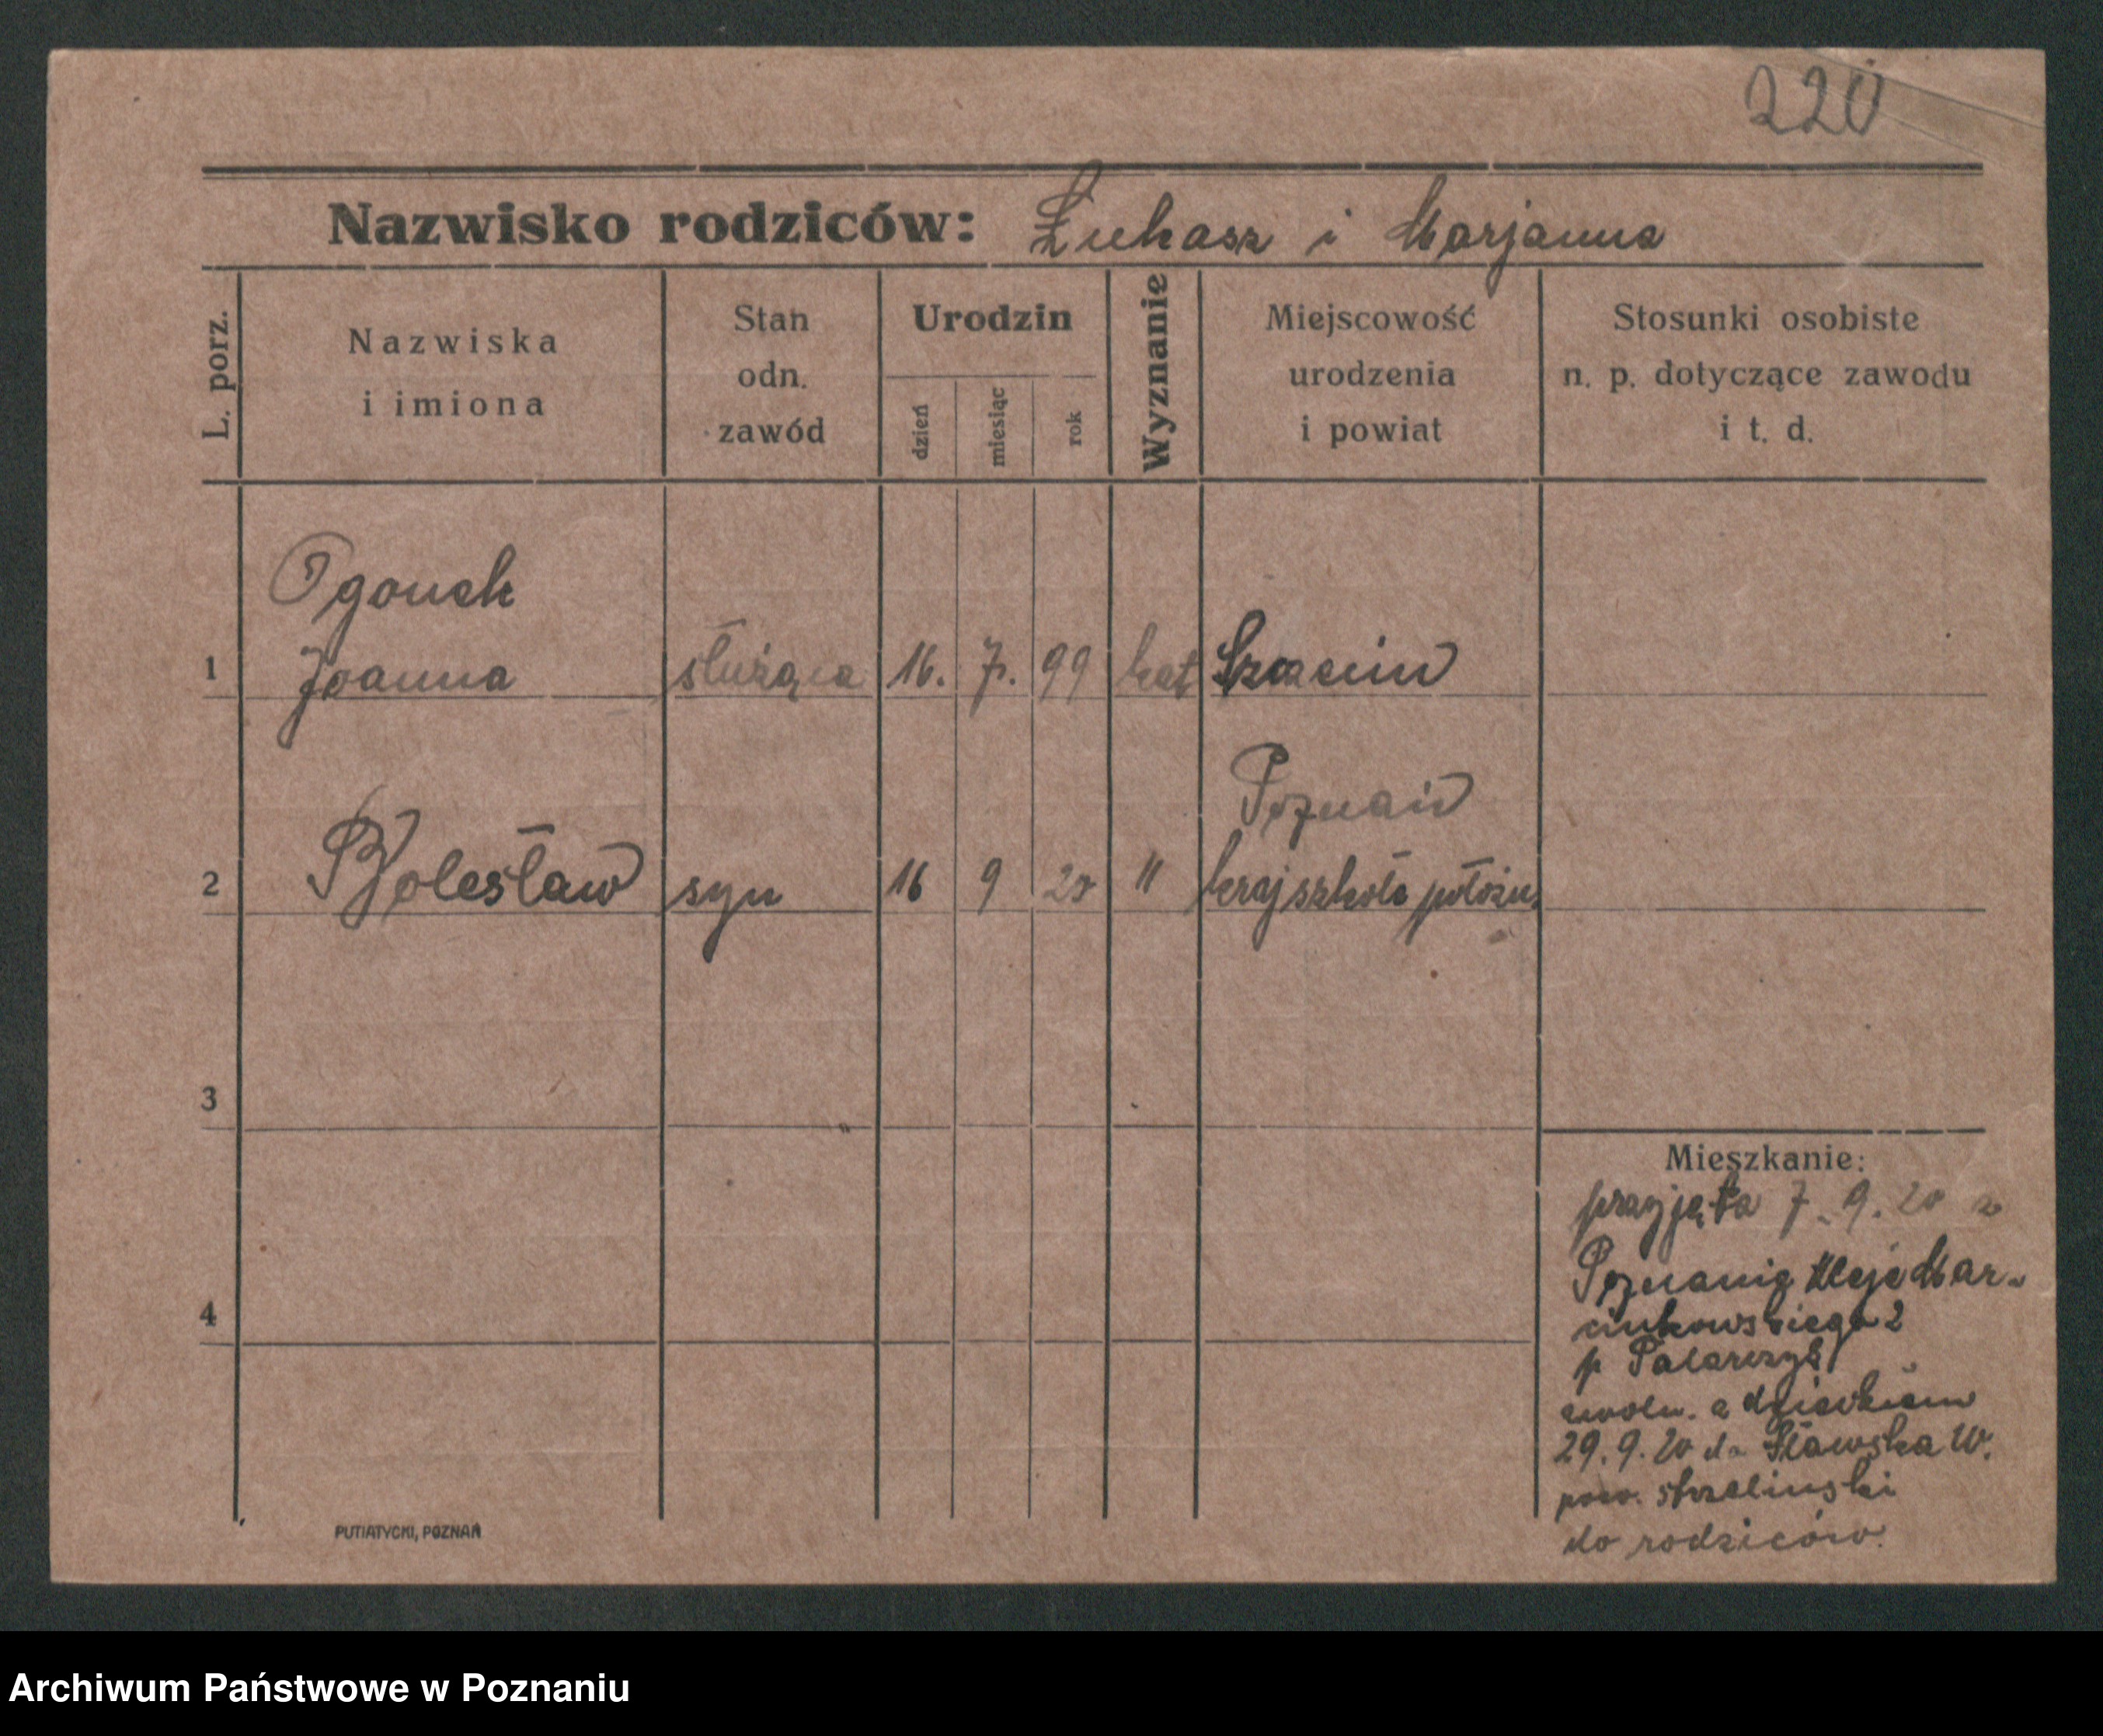 220
Nazwisko rodziców: Łukasz i Marjanna
L. porz.
Nazwiska
i imiona
Stan
odn.
zawód
Urodzin
dzień
miesiąc
rok
Wyznanie
Miejscowość
urodzenia
i powiat
Stosunki osobiste
n. p. dotyczące zawodu
i t. d.
Ogonek
1 Joanna służąca 16. 7. 99 kat
Poznań
2 Bolesław syn 16 9 20 " kraj szkoła położn.
3
4
Mieszkanie:
przyjęta 7. 9. 20 z
Poznania Aleje Mar-
cinkowskiego 2
p
zwoln. z dzieckiem
29. 9. 20 do Sławska W.
pow. strzelinski
do rodziców.
PUTIATYCKI, POZNAŃ
Archiwum Państwowe w Poznaniu